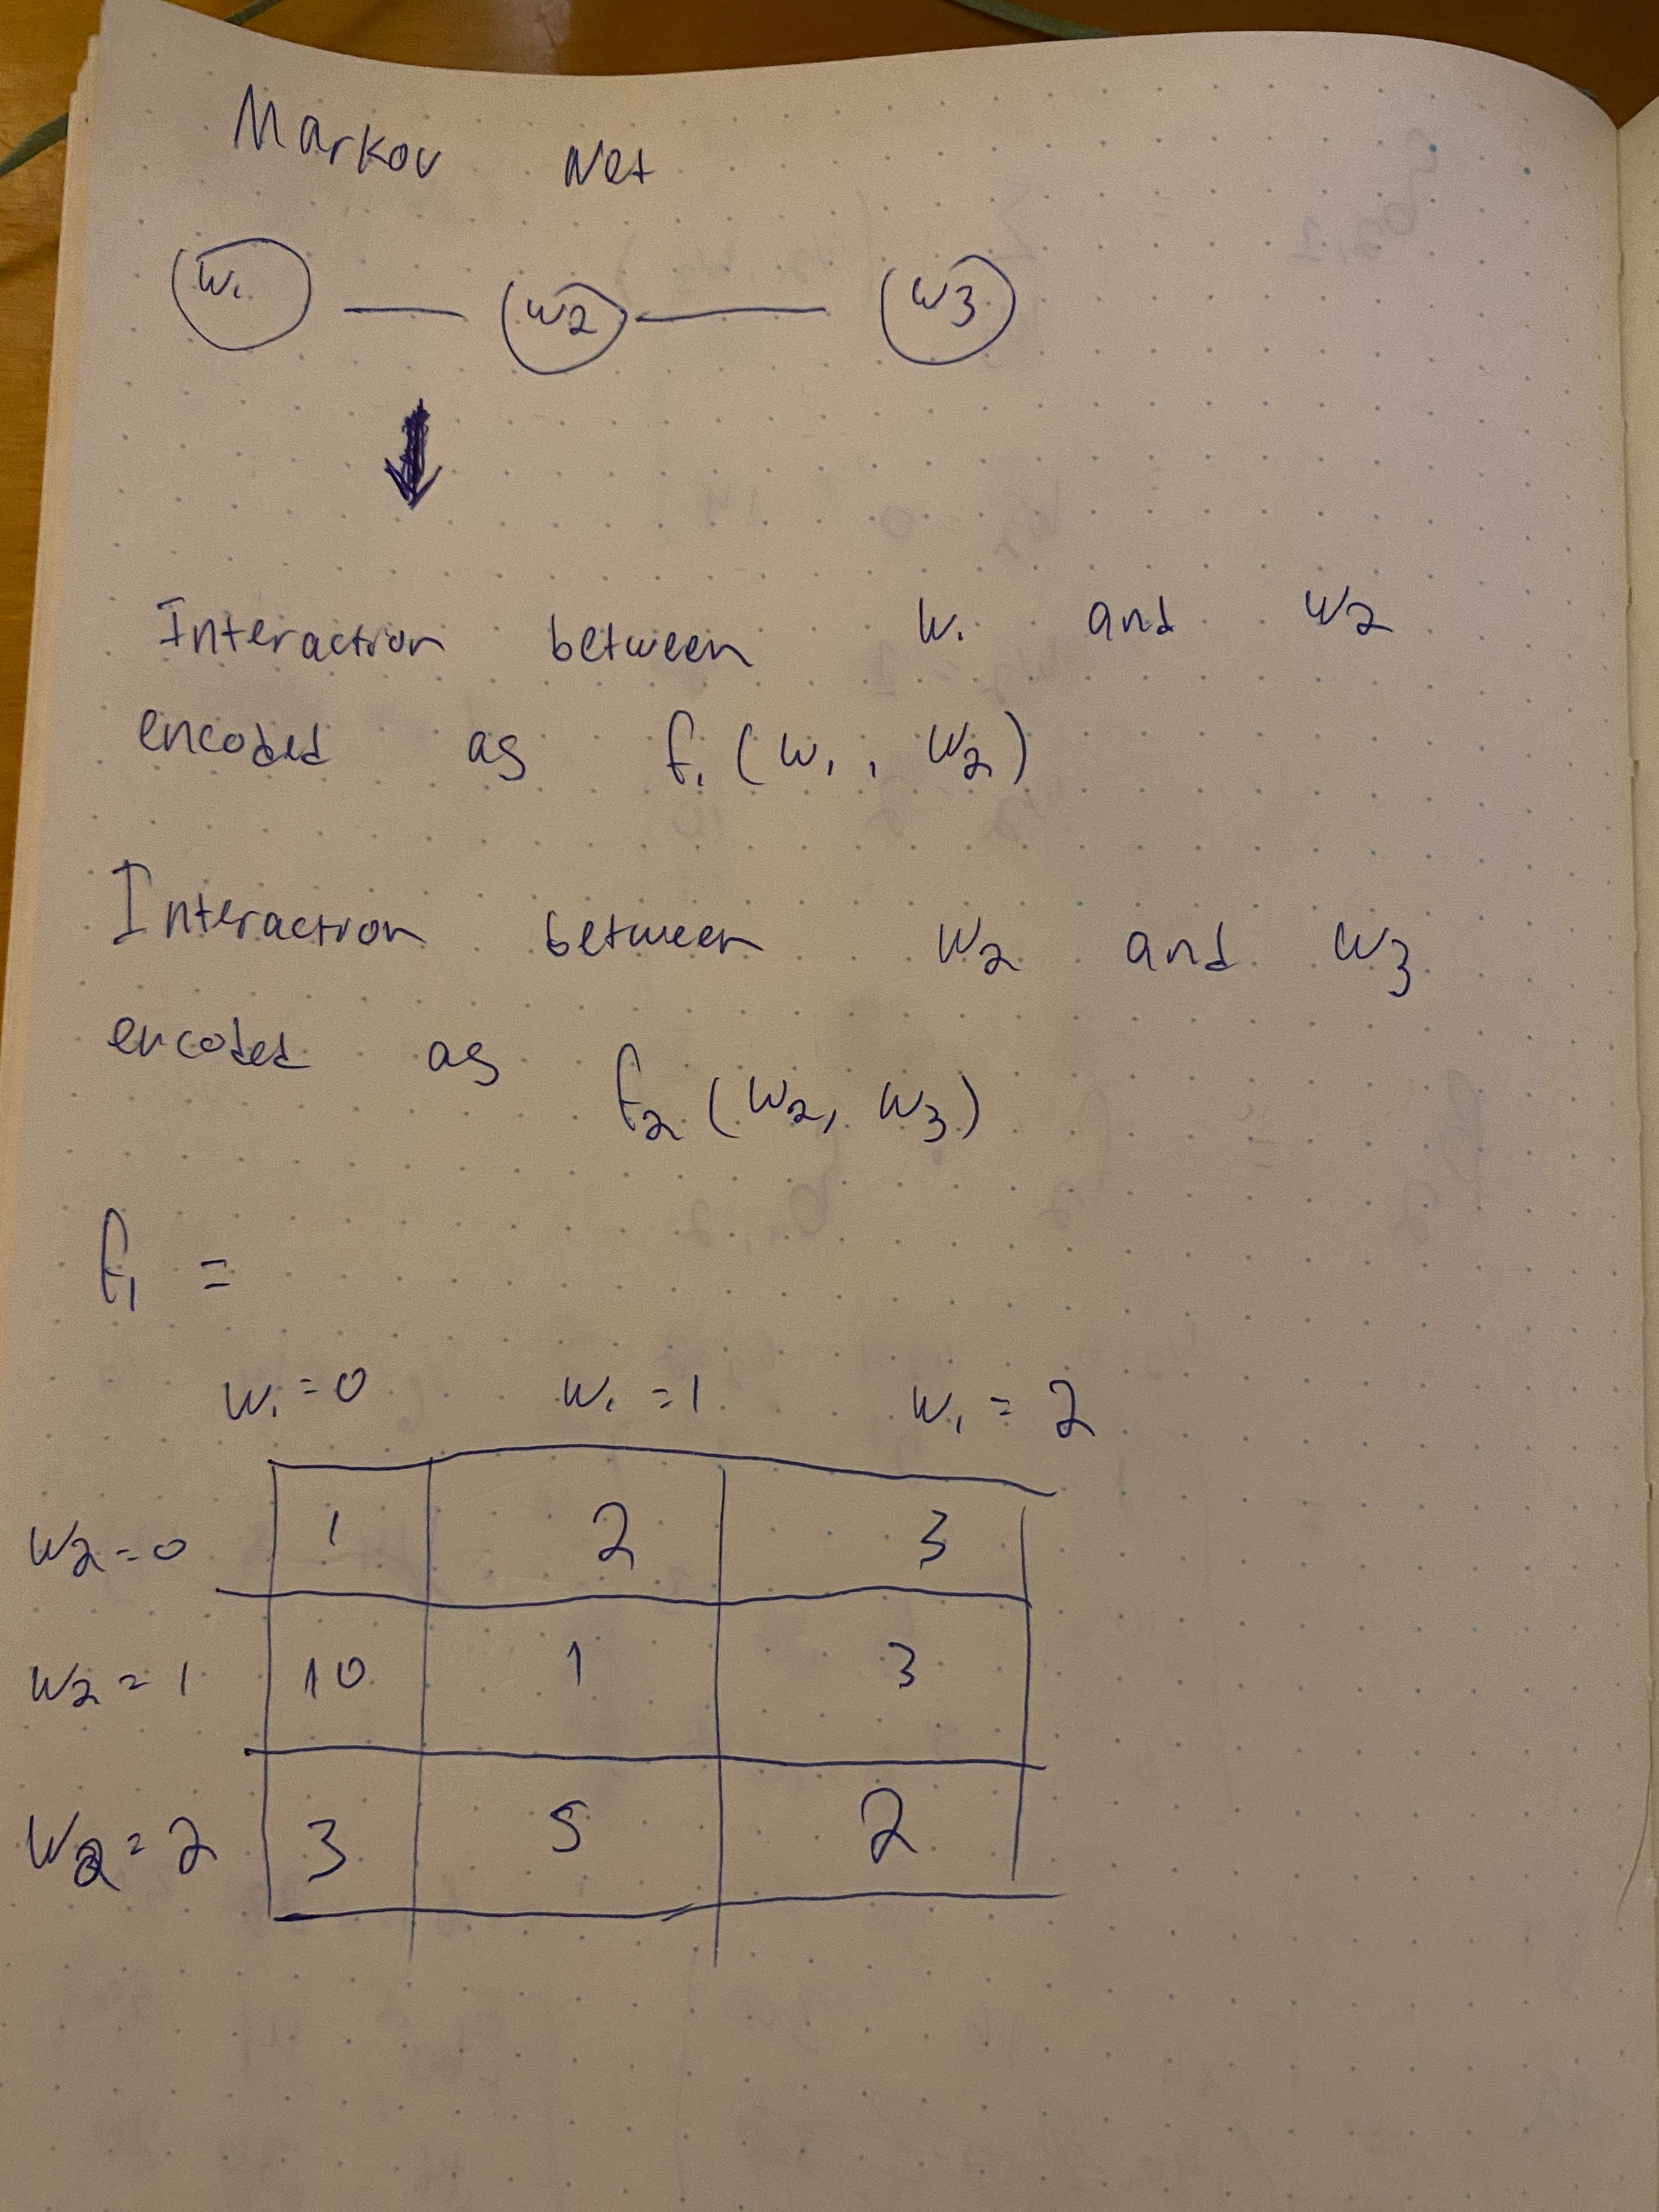 Markov Net
W1 W2 W3
Interaction between W1 and W2
encoded as f1 (W1, W2)
Interaction between W2 and W3
encoded as f2 (W2, W3)
f1 =
W1=0 W1=1 W1=2
W2=0 1 2 3
W2=1 10 1 3
W2=2 3 5 2